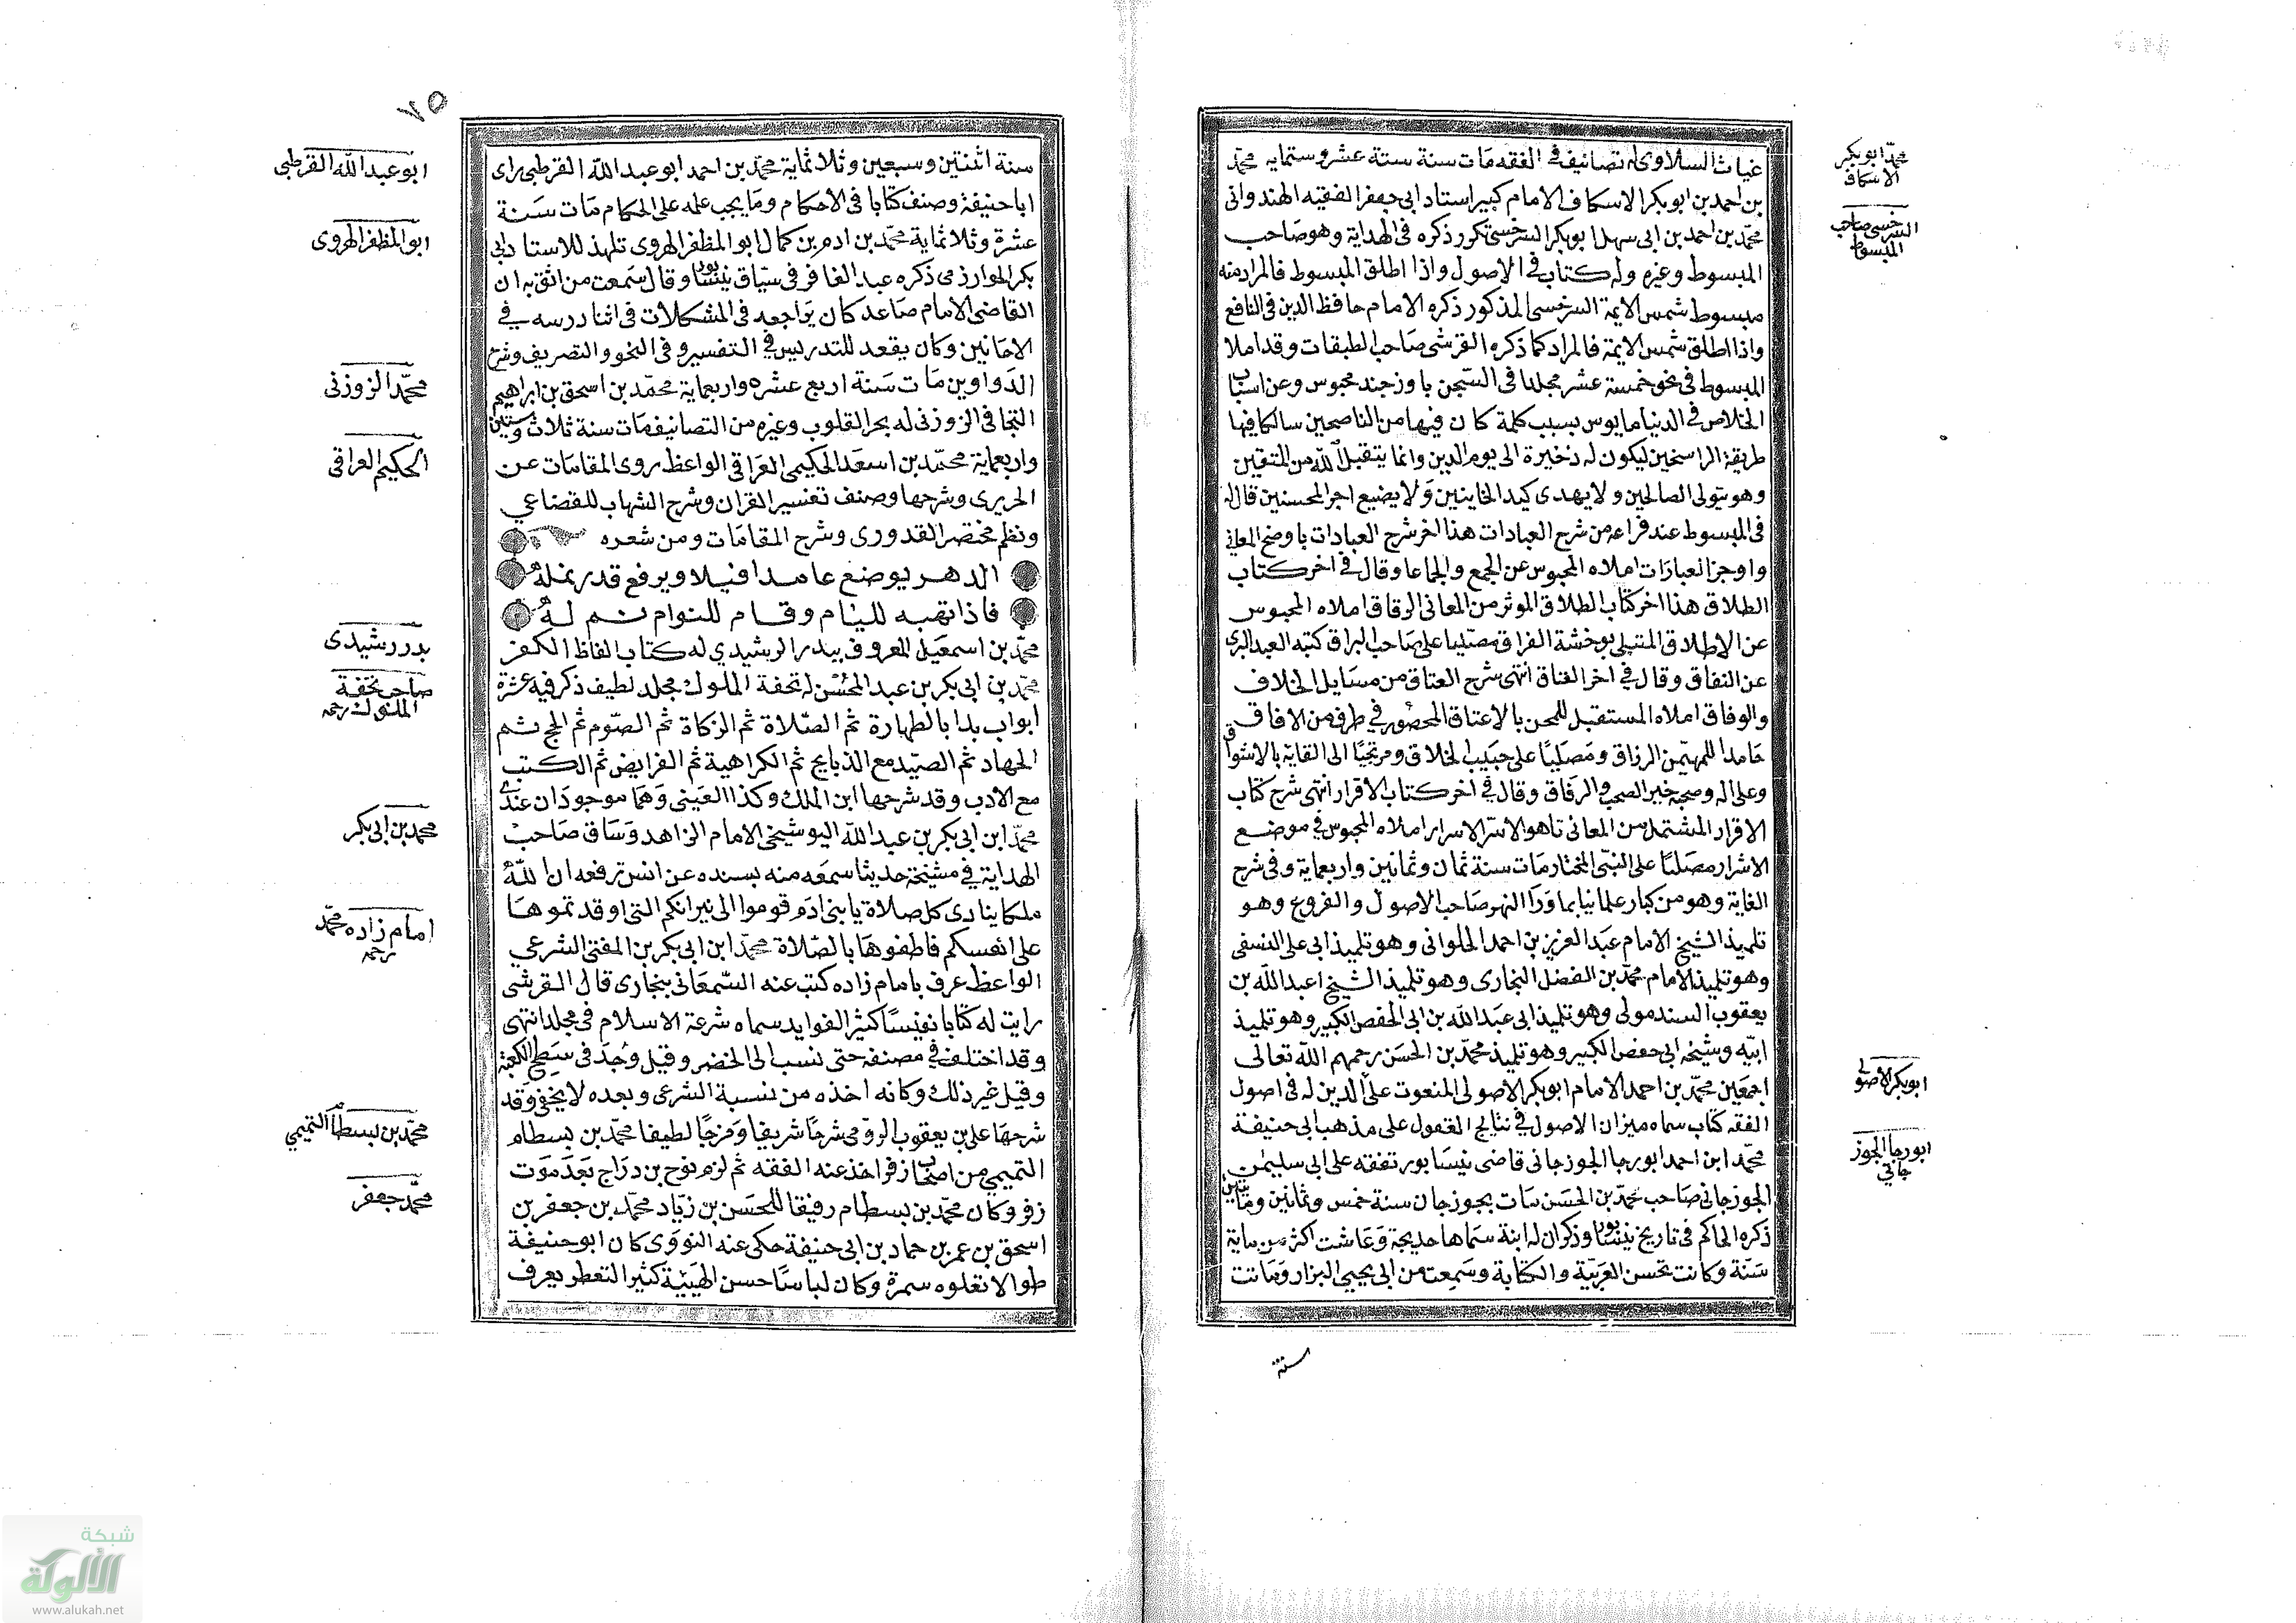 محمد ابو بكر
الاسكاف
السرخسى صاحب
المبسوط
ابو بكر الاصولى
ابو رجا الجوز
جانى
غياث السلاوى له تصانيف فى الفقه مات سنة ستة عشر وستماية محمد
بن احمد بن ابو بكر الاسكاف الامام كبير استاد ابى جعفر الفقيه الهندوانى
محمد بن احمد بن ابى سهل ابو بكر السرخسى تكرر ذكره فى الهداية وهو صاحب
المبسوط وغيره وله كتاب فى الاصول واذا اطلق المبسوط فالمراد منه
مبسوط شمس الايمة السرخسى المذكور ذكره الامام حافظ الدين فى النافع
واذا اطلق شمس الايمة فالمراد كما ذكره القرشى صاحب الطبقات وقد املا
المبسوط فى نحو خمسة عشر مجلدا فى السجن باوزجند محبوس وعن اسباب
الخلاص فى الدنيا مايوس بسبب كلمة كان فيها من الناصحين سالكا فيها
طريقة الراسخين ليكون له ذخيرة الى يوم الدين وانما يتقبل الله من المتقين
وهو يتولى الصالحين ولا يهدى كيد الخاينين ولا يضيع اجر المحسنين قال
فى المبسوط عند فراعه من شرح العبادات هذا اخر شرح العبادات باوضح المعانى
واوجز العبارات املاه المحبوس عن الجمع والجماعا وقال فى اخر كتاب
الطلاق هذا اخر كتاب الطلاق الموثر من المعانى الرقاق املاه المحبوس
عن الاطلاق المبتلى بوخشة الفراق مصليا على صاحب البراق كتبه العبد البرى
عن النفاق وقال فى اخر العتاق انتهى شرح العتاق من مسايل الخلاف
والوفاق املاه المستقبل للمحن بالاعتاق المحصور فى طرف من الافاق
حامدا للمهيمن الرزاق ومصليا على حبيب الخلاق ومرتجيا الى القايه بالاشواق
وعلى اله وصحبه خير الصحب والرفاق وقال فى اخر كتاب الاقرار انتهى شرح كتاب
الاقرار المشتمل من المعانى ما هو الاسر الاسرار املاه المحبوس فى موضع
الاشرار مصليا على النبى المختار مات سنة ثمان وثمانين واربعماية وفى شرح
الغاية وهو من كبار علمائنا بما ورا النهر صاحب الاصول والفروع وهو
تلميذ الشيخ الامام عبد العزيز بن احمد الحلوانى وهو تلميذ ابى على النسفى
وهو تلميذ الامام محمد بن الفضل البخارى وهو تلميذ الشيخ اعبد الله بن
يعقوب السندمولى وهو تلميذ ابى عبد الله بن ابى الحفص الكبير وهو تلميذ
ابيه وشيخه ابى حفص الكبير وهو تلميذ محمد بن الحسن رحمهم الله تعالى
اجمعين محمد بن احمد الامام ابو بكر الاصولى المنعوت علا الدين له فى اصول
الفقه كتاب سماه ميزان الاصول فى نتايج العقول على مذهب ابى حنيفة
محمد ابن احمد ابو رجا الجوزجانى قاضى نيسابور تفقه على ابى سليمن
الجوزجانى صاحب محمد بن الحسن مات بجوزجان سنة خمس وثمانين ومائتين
ذكره الحاكم فى تاريخ نيسابور وذكر ان له ابنة سماها خديجة وعاشت اكثر من ماية
سنة وكانت تحسن العربية والكتابة وسمعت من ابى يحيى البزار وماتت
سنة
٧٥
سنة اثنتين وسبعين وثلاثماية محمد بن احمد ابو عبد الله القرطبى يراى
ابا حنيفة وصنف كتابا فى الاحكام وما يجب عمله على الحكام مات سنة
عشرة وثلاثماية محمد بن ادم بن كمال ابو المظفر الهروى تلميذ للاستاد ابى
بكر الخوارزمى ذكره عبد الغافر فى سياق نيسابور وقال سمعت من اثق به ان
القاضى الامام صاعد كان يراجعه فى المشكلات فى اثنا درسه فى
الاحانين وكان يقعد للتدريس فى التفسير وفى النحو والتصريف وشرح
الدواوين مات سنة اربع عشره واربعماية محمد بن اسحق بن ابراهيم
النجافى الزوزنى له بحر القلوب وغيره من التصانيف مات سنة ثلاث وستين
واربعماية محمد بن اسعد الحكيمى العراقى الواعظ روى المقامات عن
الحريرى وشرحها وصنف تفسير القران وشرح الشهاب للقضاعى
ونظم مختصر القدورى وشرح المقامات ومن شعره
الدهر يوضع عامدا فيلا ويرفع قدر نمله
فاذا تنبه لليام وقام للنوام نم له
محمد بن اسمعيل المعروف ببدر الرشيدي له كتاب الفاظ الكفر
محمد بن ابى بكر بن عبد المحسن له تحفة الملوك مجلد لطيف ذكر فيه عشرة
ابواب بدا بالطهارة ثم الصلاة ثم الزكاة ثم الصوم ثم الحج ثم
الجهاد ثم الصيد مع الذبايح ثم الكراهية ثم الفرايض ثم الكتب
مع الادب وقد شرحها ابن الملك وكذا العينى وهما موجودان عندى
محمد ابن ابى بكر بن عبد الله اليوشيخى الامام الزاهد وساق صاحب
الهداية فى مشيخة حديثا سمعه منه بسنده عن انس ترفعه ان لله
ملكا ينادى كل صلاة يا بنى ادم قوموا الى نيرانكم التى اوقد تموها
على انفسكم فاطفوها بالصلاة محمد ابن ابى بكر بن المفتى الشرعي
الواعظ عرف بامام زاده كتب عنه السمعانى ببخارى قال القرشى
رايت له كتابا نفيسا كثير الفوايد سماه شرعة الاسلام فى مجلد انتهى
وقد اختلف فى مصنفه حتى نسب الى الخضر وقيل وجد فى سطح الكعبة
وقيل غير ذلك وكانه اخذه من نسبة الشرعى وبعده لا يخفى وقد
شرحها على بن يعقوب الرومى شرحا شريفا ومزجا لطيفا محمد بن بسطام
التميمي من اصحاب زفر اخذ عنه الفقه ثم لزم نوح بن دراج بعد موت
زفر وكان محمد بن بسطام رفيقا للحسن بن زياد محمد بن جعفر بن
اسحق بن عمر بن حماد بن ابى حنيفة حكى عنه النووى كان ابو حنيفة
طوالا تعلوه سمرة وكان لباسا حسن الهيئة كثير التعطر يعرف
ابو عبد الله القرطبى
ابو المظفر الهروى
محمد الزوزنى
الحكيم العراقى
بدر رشيدى
صاحب تحفة
الملوك رحمه
محمد بن ابى بكر
امام زاده محمد
رحمه
محمد بن بسطام التميمي
محمد جعفر
شبكة
الألوكة
www.alukah.net